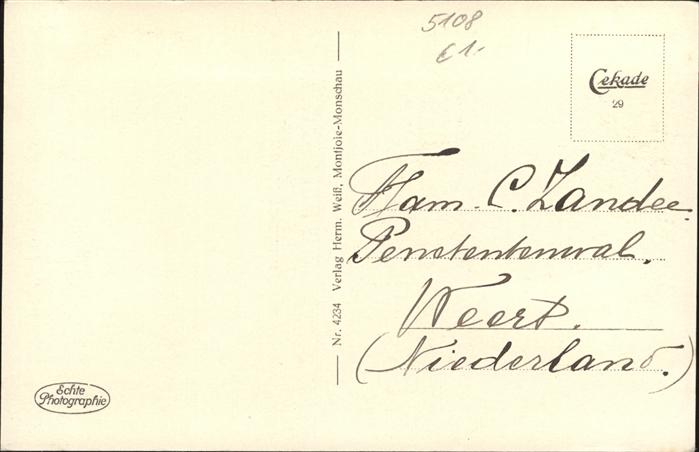 5108
€ 1.-
Cekade
29
Nr. 4234 Verlag Herm. Weiß, Montjoie-Monschau
Fam. C. Zandee.
Penetentenwal.
Weert.
(Niederland.)
Echte
Photographie